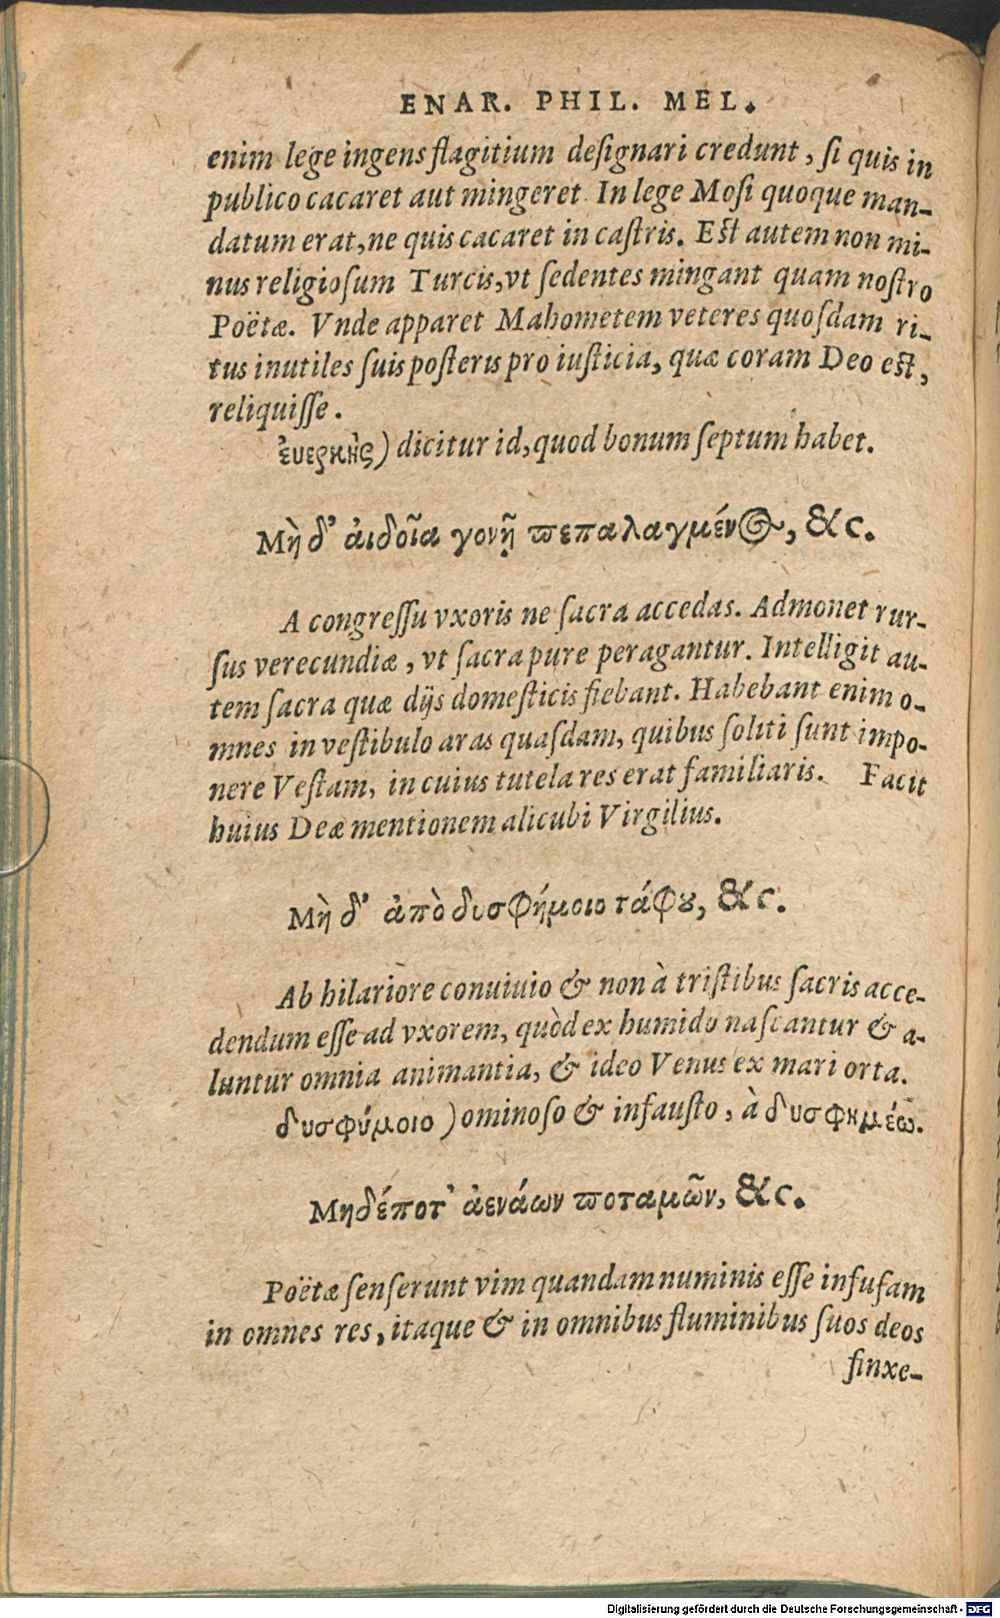 ENAR. PHIL. MEL.
enim lege ingens flagitium deſignari credunt, ſi quis in
publico cacaret aut mingeret. In lege Moſi quoque man-
datum erat, ne quis cacaret in caſtris. Eſt autem non mi-
nus religioſum Turcis, vt ſedentes mingant quam noſtro
Poëtæ. Vnde apparet Mahometem veteres quoſdam ri-
tus inutiles ſuis poſteris pro iuſticia, quæ coram Deo eſt,
reliquiſſe.
ἐυερκὴς) dicitur id, quod bonum ſeptum habet.
Μὴ δ' ἀιδοῖα γονῇ πεπαλαγμένος, &c.
A congreſſu vxoris ne ſacra accedas. Admonet rur-
ſus verecundiæ, vt ſacra pure peragantur. Intelligit au-
tem ſacra quæ dijs domeſticis fiebant. Habebant enim o-
mnes in veſtibulo aras quaſdam, quibus ſoliti ſunt impo-
nere Veſtam, in cuius tutela res erat familiaris. Facit
huius Deæ mentionem alicubi Virgilius.
Μὴ δ' ἀπὸ δυσφήμοιο τάφου, &c.
Ab hilariore conuiuio & non à triſtibus ſacris acce-
dendum eſſe ad vxorem, quòd ex humido naſcantur & a-
luntur omnia animantia, & ideo Venus ex mari orta.
δυσφύμοιο) ominoso & infauſto, à δυσφημέω.
Μηδέποτ' ἀενάων ποταμῶν, &c.
Poëtæ ſenſerunt vim quandam numinis eſſe infuſam
in omnes res, itaque & in omnibus fluminibus ſuos deos
finxe-
Digitalisierung gefördert durch die Deutsche Forschungsgemeinschaft - DFG